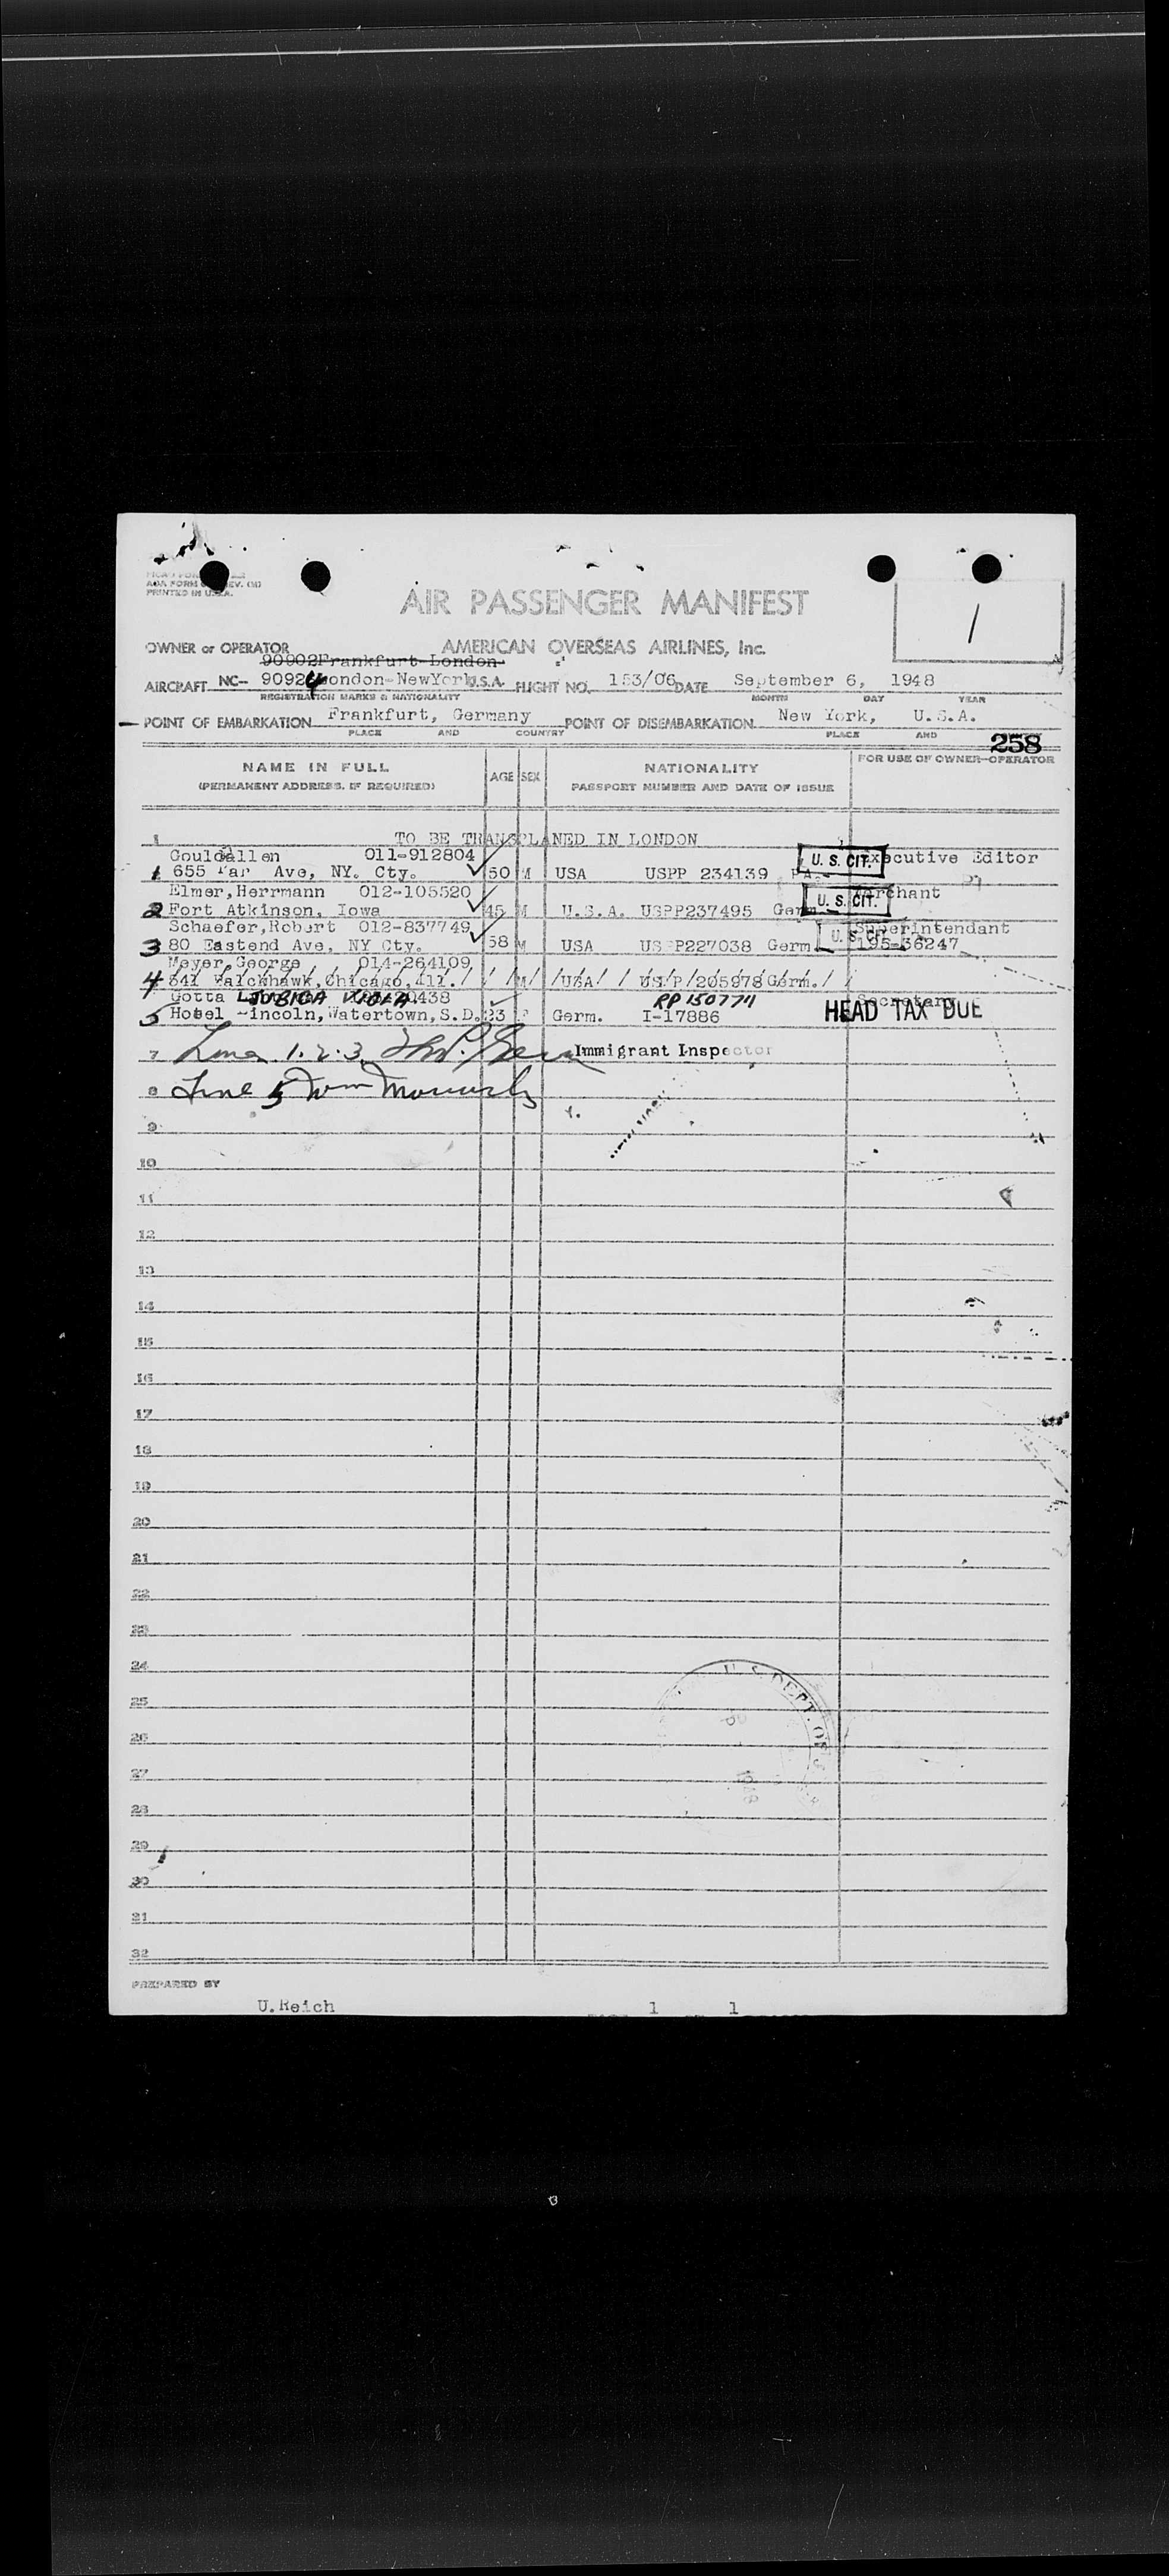 AOA FORM REV.
PRINTED IN U.S.A.
AIR PASSENGER MANIFEST
1
OWNER or OPERATOR AMERICAN OVERSEAS AIRLINES, Inc.
90902Frankfurt-London
AIRCRAFT NC- 90924 London-NewYork U.S.A. FLIGHT NO. 153/06 DATE September 6, 1948
REGISTRATION MARKS & NATIONALITY MONTH DAY YEAR
POINT OF EMBARKATION Frankfurt, Germany POINT OF DISEMBARKATION New York, U.S.A.
PLACE AND COUNTRY PLACE AND
258
NAME IN FULL AGE SEX NATIONALITY FOR USE OF OWNER-OPERATOR
(PERMANENT ADDRESS, IF REQUIRED) PASSPORT NUMBER AND DATE OF ISSUE
1 TO BE TRANSPLANED IN LONDON
011-912804 U. S. CIT. Executive Editor
1 655 Ave, NY. Cty. 50 M USA USPP 234139
Elmer, Herrmann 012-105520 U. S. CIT. Merchant
2 Fort Atkinson, Iowa 45 M U.S.A. USPP237495 Germ.
Schaefer,Robert 012-837749 U. S. CIT. Superintendant
3 80 Eastend Ave, NY Cty. 58 M USA USPP227038 Germ. 195-36247
Meyer George 014-264109
4 Chicago, Ill. M USA USPP 205978 Germ.
Gotta LJUBICA VIOLA 0438 RP 150771 Secretary
5 Hotel Lincoln, Watertown, S.D. 23 F Germ. I-17886 HEAD TAX DUE
7 Line 1.2.3 Immigrant Inspector
8 Line 5 Wm
9
10
11
12
13
14
15
16
17
18
19
20
21
22
23
24
25
26
27
28
29
30
31
32
U. S. DEPT. OF
PREPARED BY
U.Reich 1 1